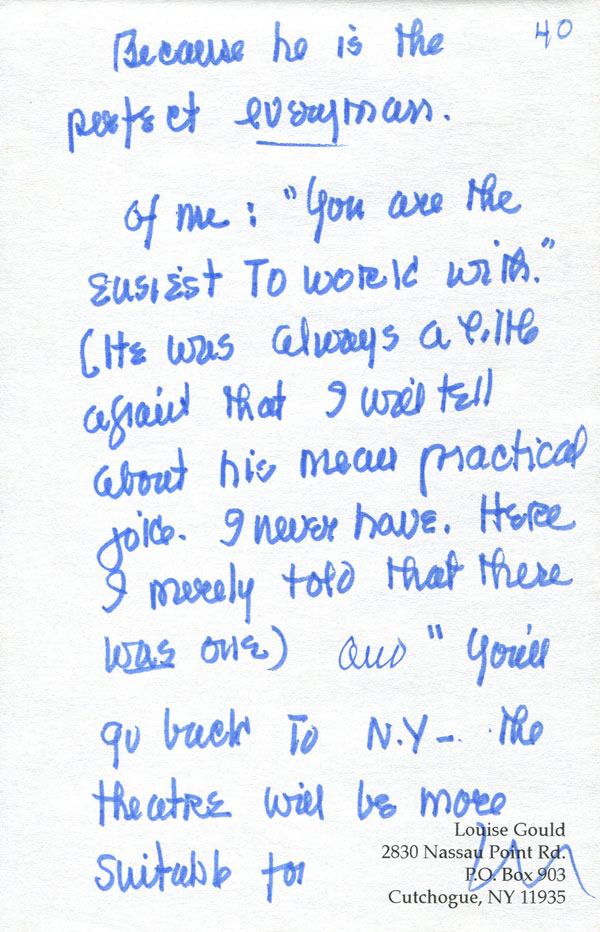 40
Because he is the
perfect everyman.
Of me: "You are the
easiest to work with."
(He was always a little
afraid that I would tell
about his mean practical
joke. I never have. Here
I merely told that there
was one) and "You'll
go back to N.Y – the
theatre will be more
suitable for
Louise Gould
2830 Nassau Point Rd.
P.O. Box 903
Cutchogue, NY 11935